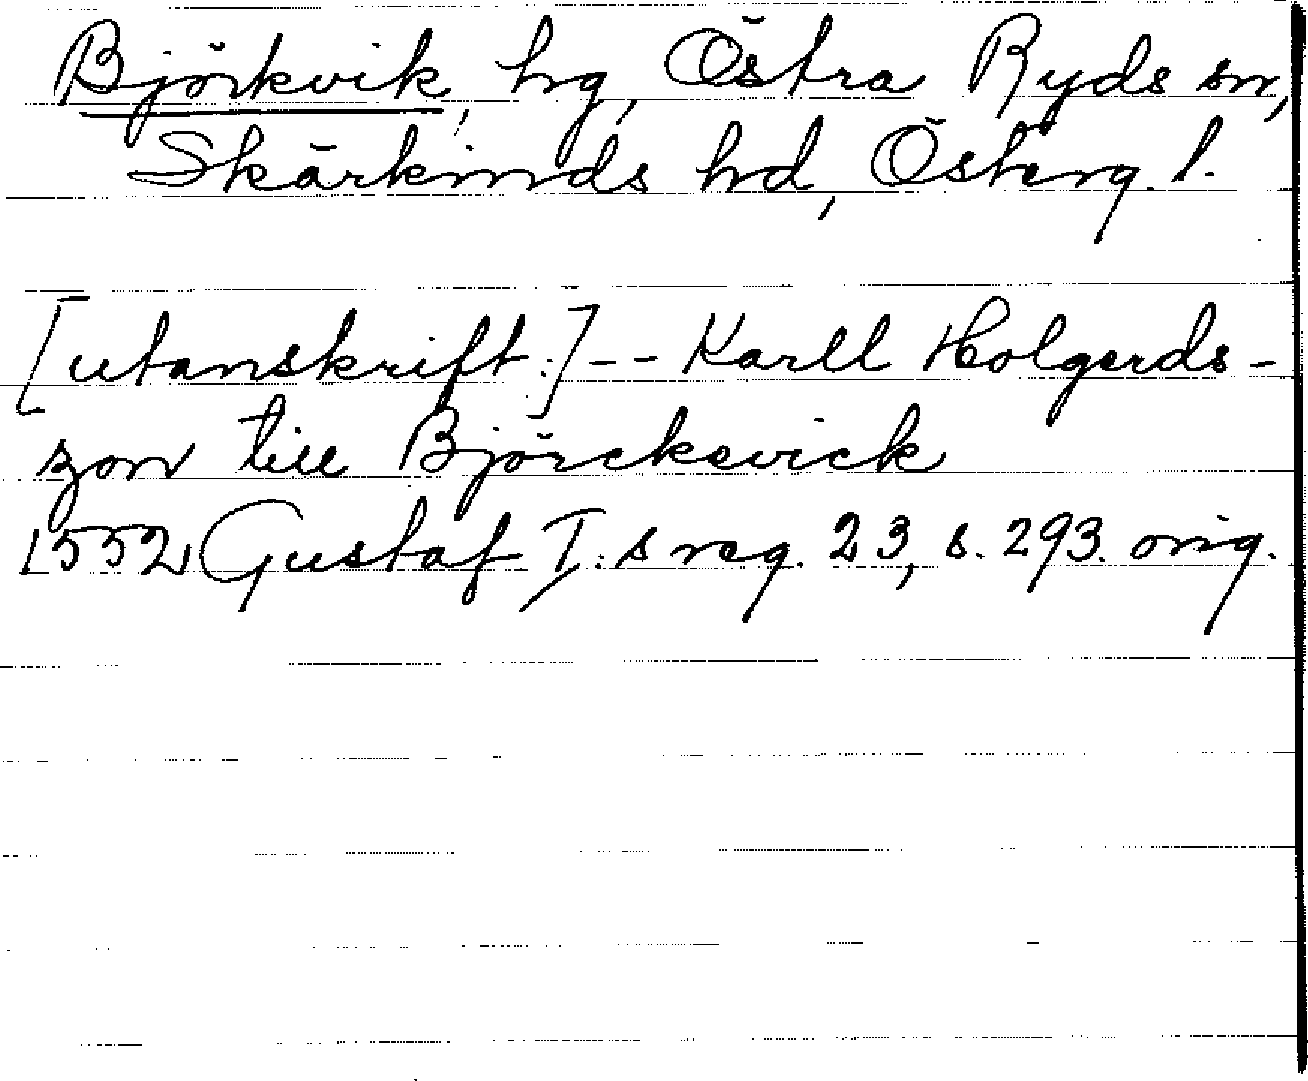 Björkvik, hg, Östra Ryds sn,
Skärkinds hd, Österg. l.
[utanskrift:] -- Karll Holgerds-
zon till Björckevick
1552 Gustaf I:s reg. 23, s. 293. orig.